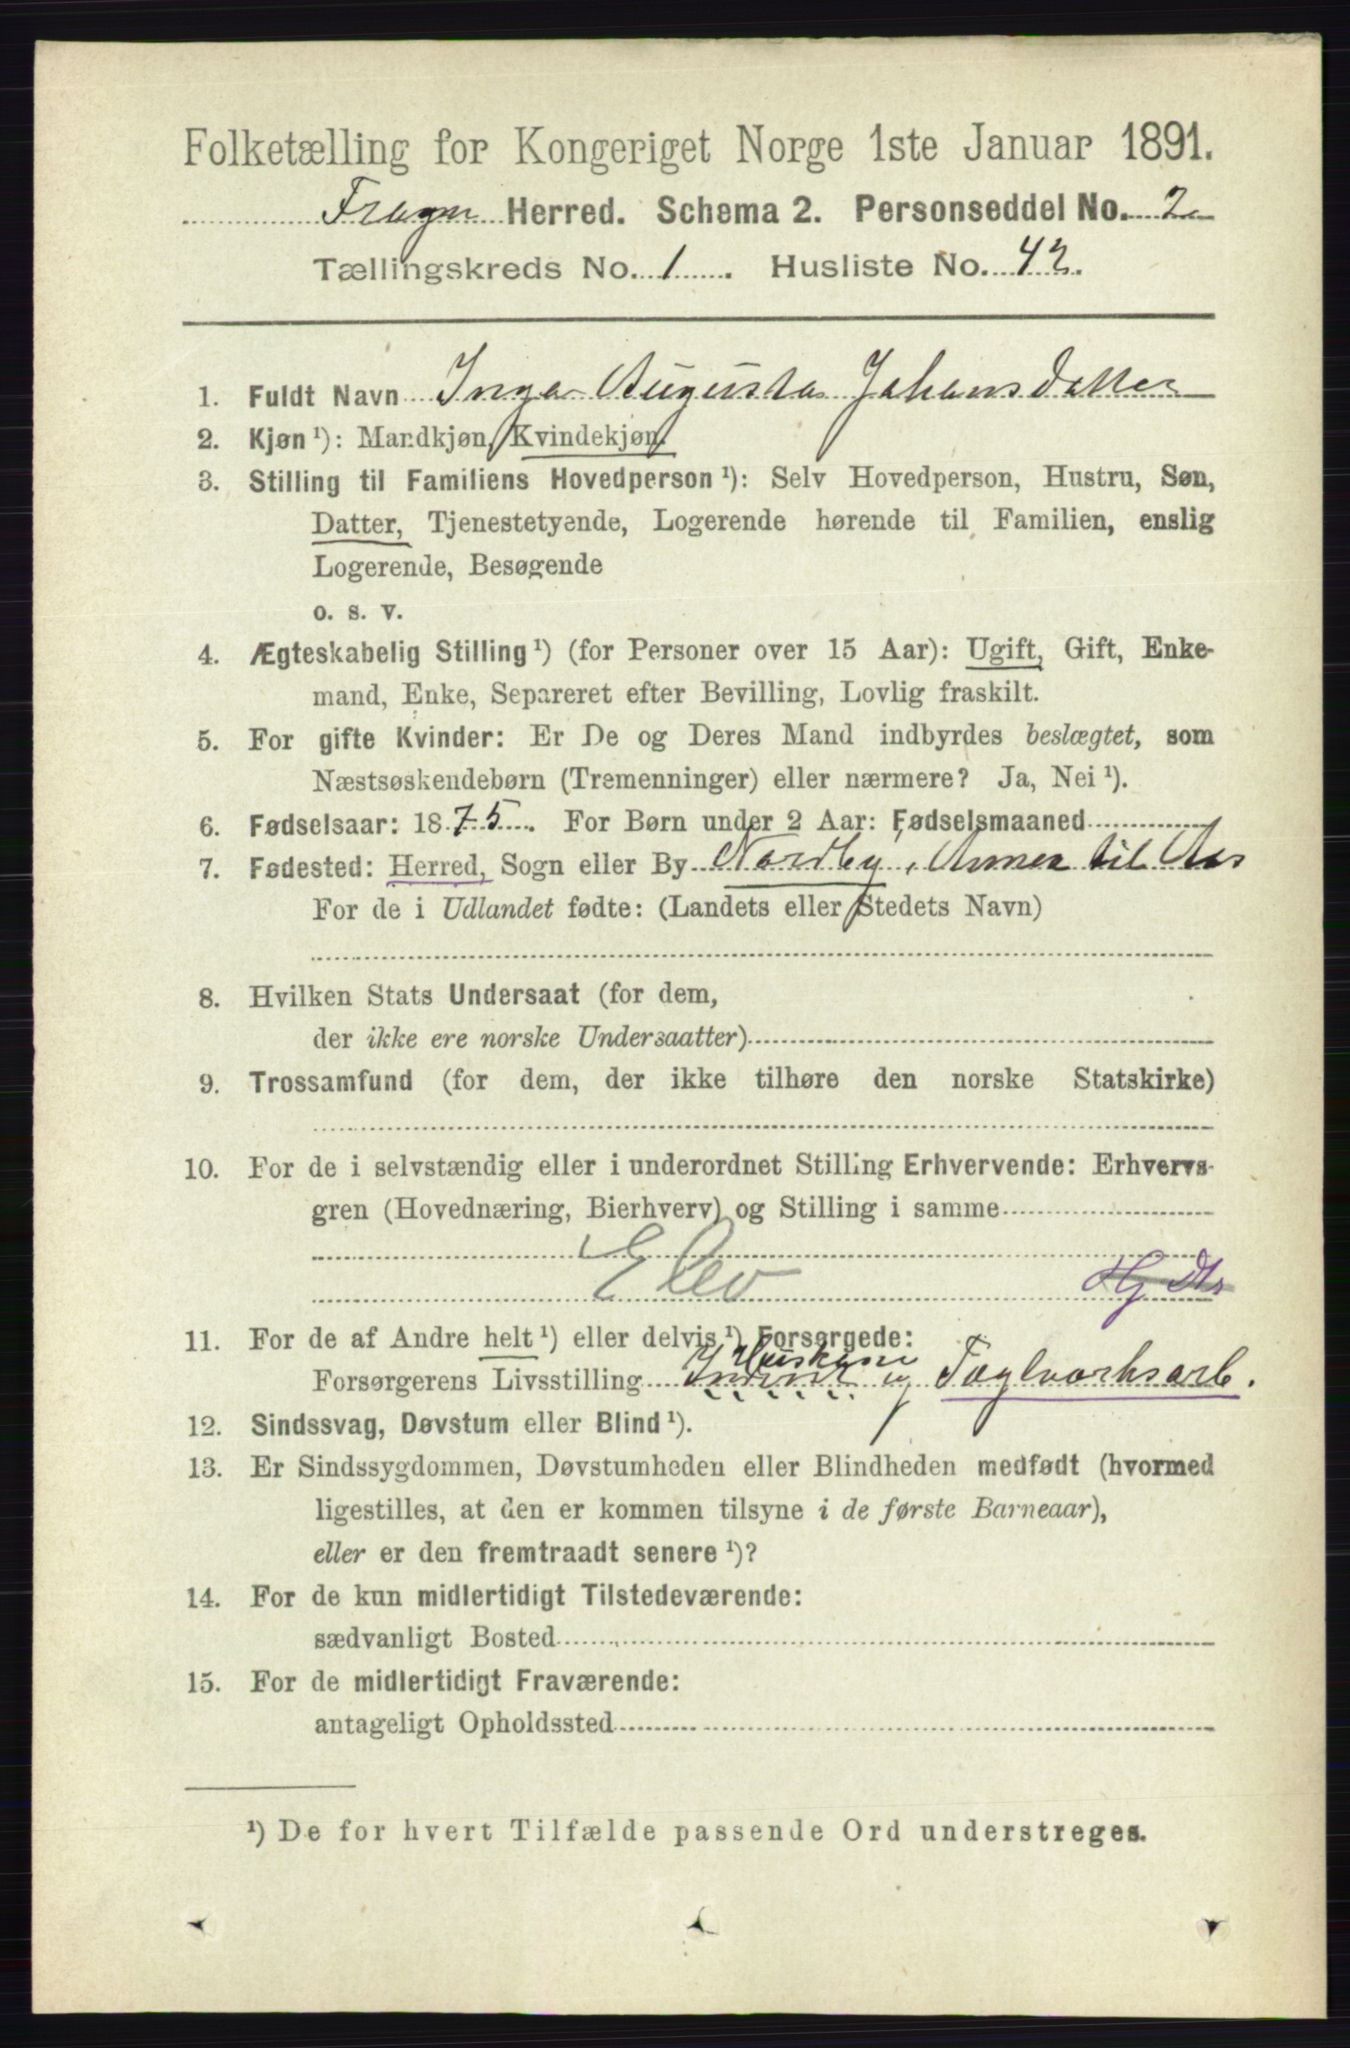 Folketælling for Kongeriget Norge 1ste Januar 1891.
Frogn Herred. Schema 2. Personseddel No. 2
Tællingskreds No. 1. Husliste No. 42.
1. Fuldt Navn Inga Augusta Johansdatter
2. Kjøn ¹): Mandkjøn, Kvindekjøn.
3. Stilling til Familiens Hovedperson ¹): Selv Hovedperson, Hustru, Søn,
Datter, Tjenestetyende, Logerende hørende til Familien, enslig
Logerende, Besøgende
o. s. v.
4. Ægteskabelig Stilling ¹) (for Personer over 15 Aar): Ugift, Gift, Enke-
mand, Enke, Separeret efter Bevilling, Lovlig fraskilt.
5. For gifte Kvinder: Er De og Deres Mand indbyrdes beslægtet, som
Næstsøskendebørn (Tremenninger) eller nærmere? Ja, Nei ¹).
6. Fødselsaar: 1875. For Børn under 2 Aar: Fødselsmaaned
7. Fødested: Herred, Sogn eller By Nordby, Annex til Aas
For de i Udlandet fødte: (Landets eller Stedets Navn)
8. Hvilken Stats Undersaat (for dem,
der ikke ere norske Undersaatter)
9. Trossamfund (for dem, der ikke tilhøre den norske Statskirke)
10. For de i selvstændig eller i underordnet Stilling Erhvervende: Erhvervs-
gren (Hovednæring, Bierhverv) og Stilling i samme
Elev
11. For de af Andre helt ¹) eller delvis ¹) Forsørgede:
Forsørgerens Livsstilling og Taglværksarb.
12. Sindssvag, Døvstum eller Blind ¹).
13. Er Sindssygdommen, Døvstumheden eller Blindheden medfødt (hvormed
ligestilles, at den er kommen tilsyne i de første Barneaar),
eller er den fremtraadt senere ¹)?
14. For de kun midlertidigt Tilstedeværende:
sædvanligt Bosted
15. For de midlertidigt Fraværende:
antageligt Opholdssted
¹) De for hvert Tilfælde passende Ord understreges.